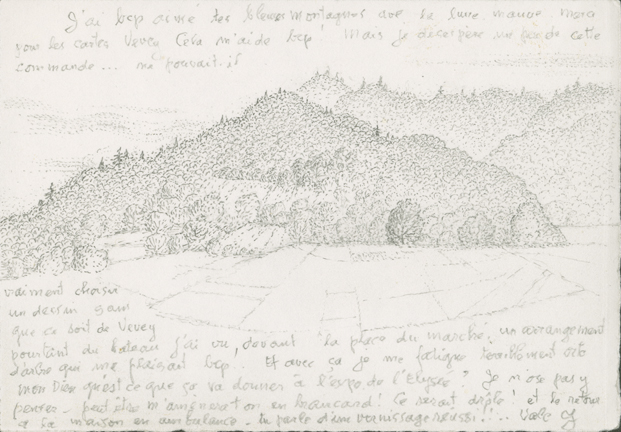 J'ai bcp aimé tes bleues montagnes avec la lune mauve, merci
pour les cartes Vevey Cela m'aide bcp! Mais je désespère un peu de cette
commande... ne pouvait-il
vraiment choisir
un dessin sans
que ce soit de Vevey
pourtant du bateau j'ai vu, devant la place du marché, un arrangement
d'arbre qui me plaisait bcp. Et avec ça je me fatigue tellement
mon Dieu qu'est ce que ça va donner à l'expo de l'Elysée? Je n'ose pas y
penser - peut être m'amènera t on en brancard! Ce serait drôle! et le retour
à la maison en ambulance - tu parle d'une vernissage réussi!...